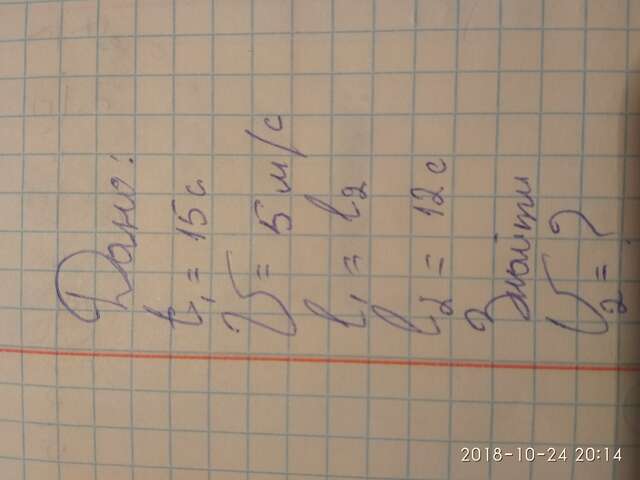 Дано:
t₁ = 15 с
V = 5 м/с
l₁ = l₂
t₂ = 12 с
Знайти
V₂ = ?
2018-10-24 20:14